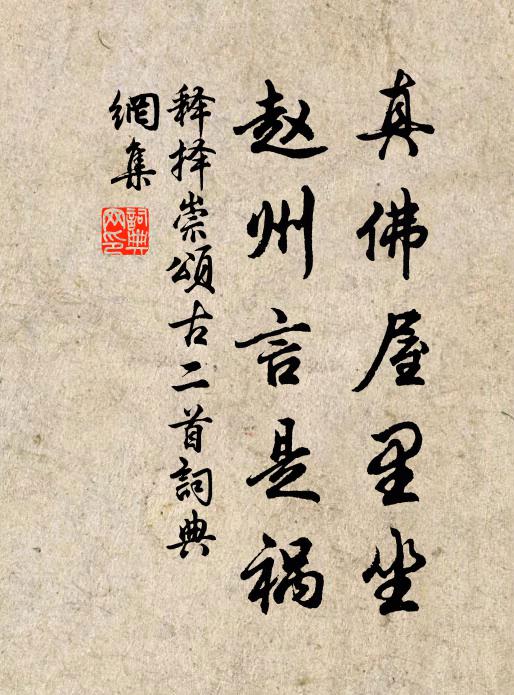 真佛屋里坐
赵州言是祸
释择崇頌古二首詞典
網集
詞典
网印